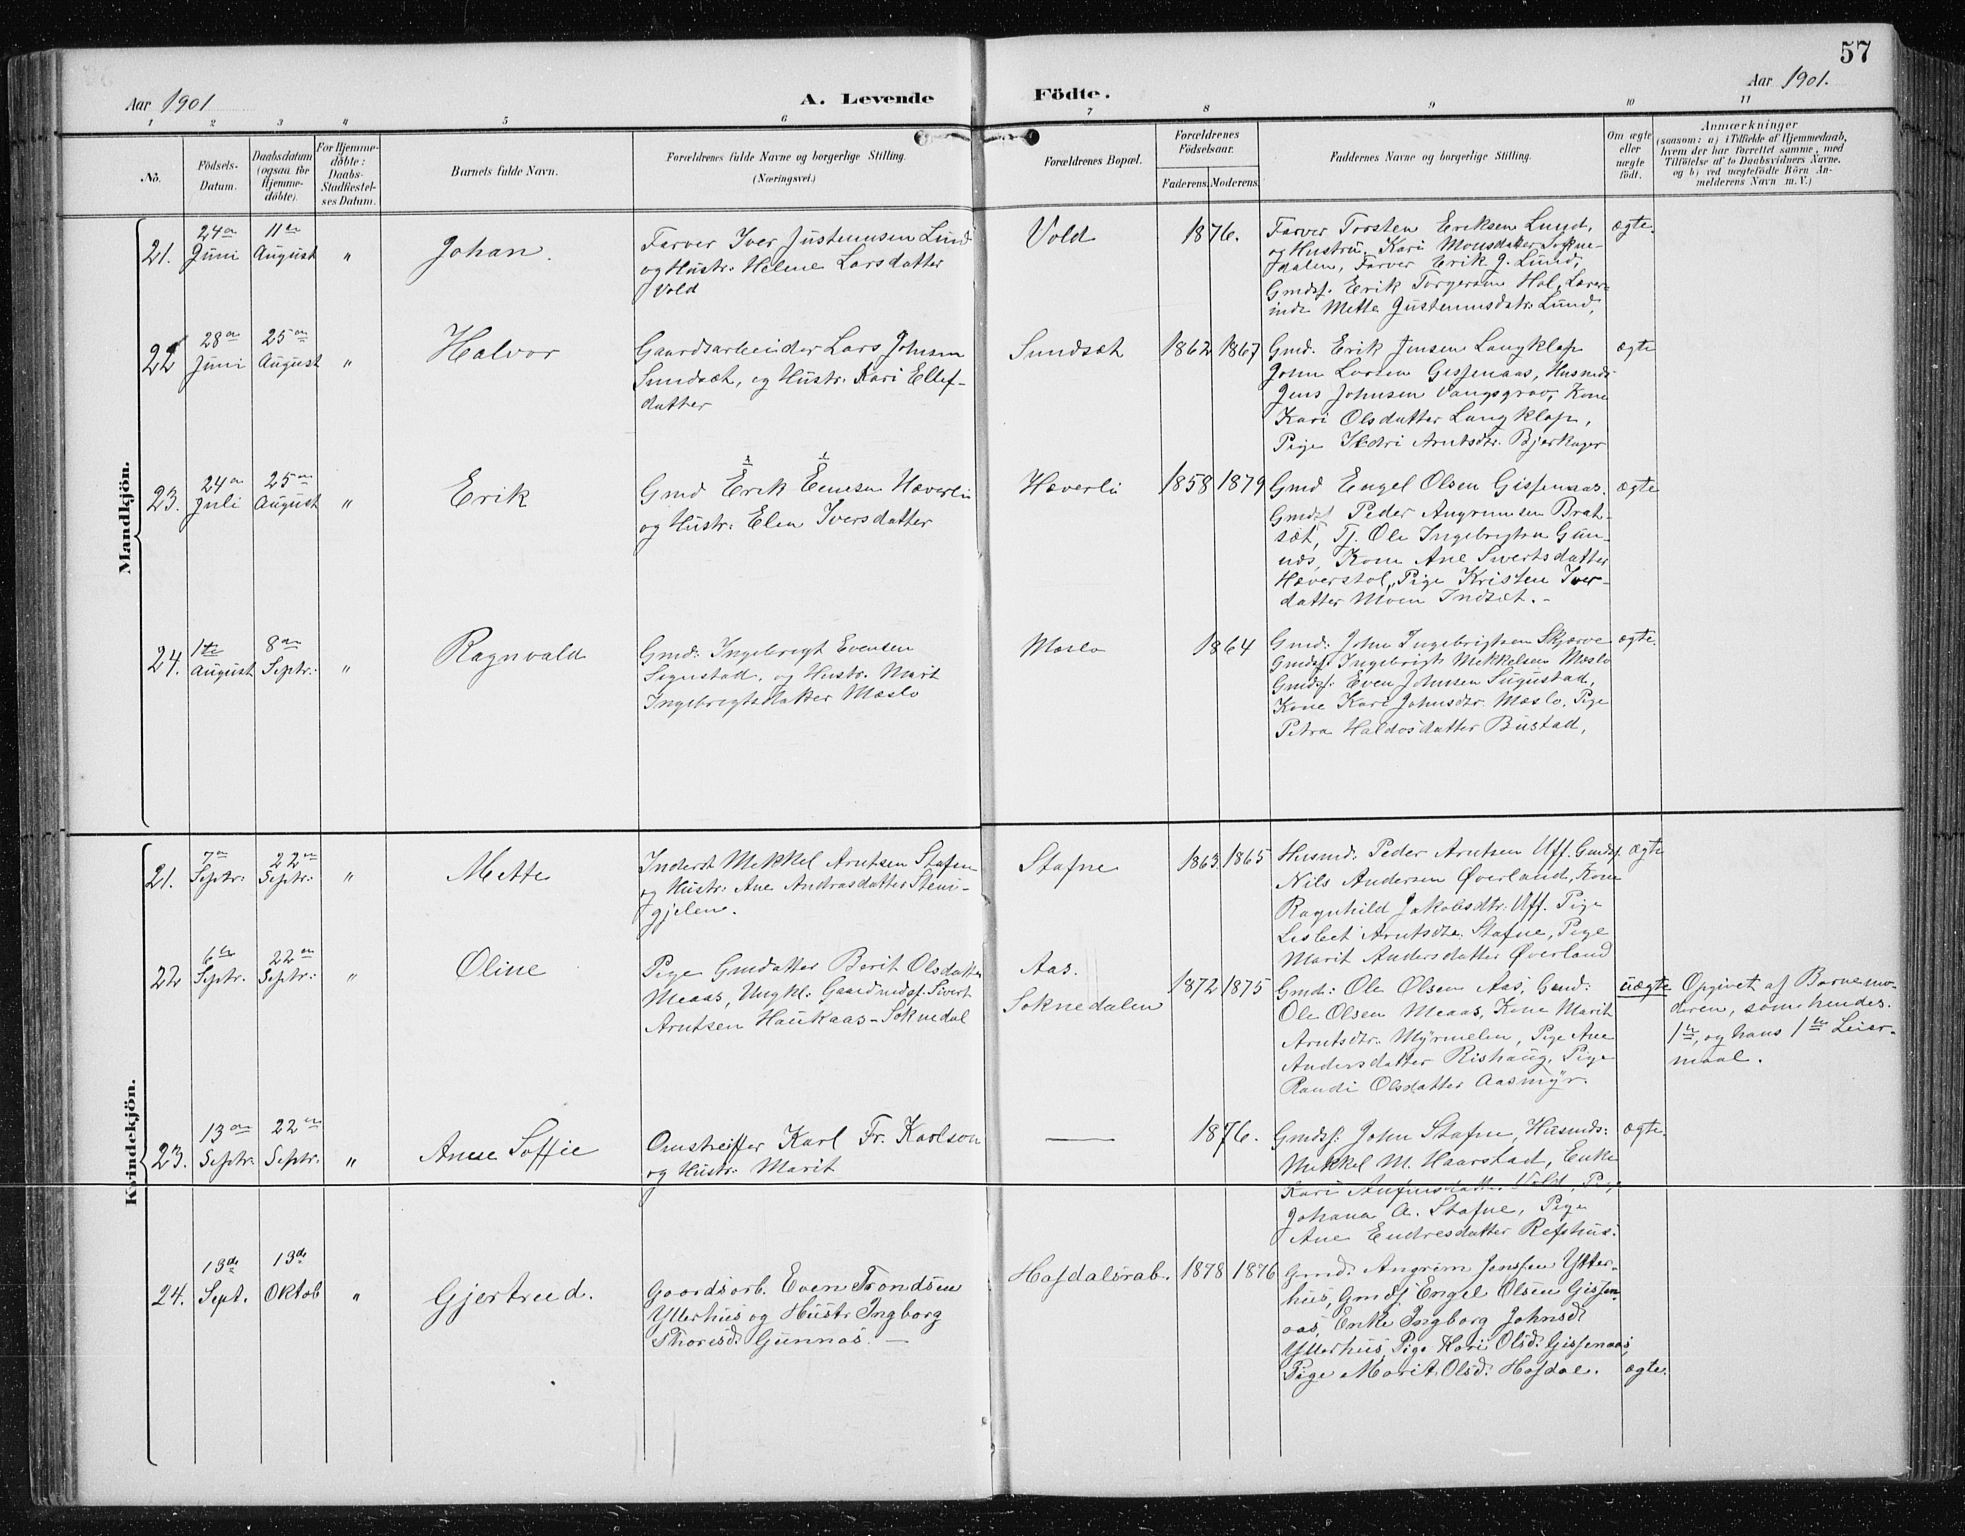 57
Aar 1901
A. Levende
Födte.
Aar 1901.
1 2 3 4 5 6 7 8 9 10 11
No.
Födsels-
Datum.
Daabsdatum
(ogsaa for
Hjemme-
döbte).
For Hjemme-
döbte:
Daabs-
Stadfæstel-
ses Datum.
Barnets fulde Navn.
Forældrenes fulde Navne og borgerlige Stilling.
(Næringsvei.)
Forældrenes Bopæl.
Forældrenes
Födselsaar.
Faderens. Moderens.
Faddernes Navne og borgerlige Stilling.
Om ægte
eller
uægte
födt.
Anmærkninger
(saasom: a) i Tilfælde af Hjemmedaab,
hvem der har forrettet samme, med
Tilföielse af to Daabsvidners Navne.
og b) ved uægtefödte Börn An-
melderens Navn m. V.)
Mandkjön.
21.
24de
Juni
11te
August
"
Johan.
Farver Iver Justensen Lund
og Hustr: Helene Larsdatter
Vold
Vold
1876.
Farver Trosten Eriksen Lund,
og Hustru, Kari Monsdatter Sokne-
dalen, Farver Erik J. Lund,
Gmdsf. Erik Torgersen Hol, Lærer-
inde Mette Justensdatr: Lund,
ægte.
22
28de
Juni
25de
August
"
Halvor
Gaardsarbeider Lars Johnsen
Sundsæt, og Hustr: Kari Ellef-
datter
Sundsæt
1862 1867
Gmd. Erik Jensen Langklop
John Larsen Gissenaas, Husmds
Jens Johnsen Vangsgrav, Kone
Kari Olsdatter Langklop,
Pige Ildri Arntsdtr. Bjerkager
ægte
23.
24de
Juli
25de
August
"
Erik
Gmd Erik Ensen Hæverli
og Hustr: Elen Iversdatter
Hæverli
1858 1879
Gmd Engel Olsen Gissenaas.
Gmdsf Peder Angrimsen Brat-
sæt, Tj. Ole Ingebrigtsen Gun-
næs, Kone Ane Sivertsdatter
Hæverstol, Pige Kristen Iver-
datter Moen Indsæt.-
ægte
24.
1ste
August
8de
Septr:
"
Ragnvald
Gmd: Ingebrigt Evensen
Sugustad, og Hustr: Marit
Ingebrigtsdatter Mæslo
Mæslo
1864
Gmd: John Ingebrigtsen Skjærve
Gmdsf. Ingebrigt Mekkelsen Mæslo
Gmdsf: Even Johnsen Sugustad,
Kone Kari Johnsdtr: Mæslo, Pige
Petra Haldosdatter Bustad,
ægte.
Kvindekjön.
21.
7de
Septr:
22de
Septr:
"
Mette
Inderst Mekkel Arntsen Stafne
og Hustr: Ane Andrasdatter Steni-
gjelen.
Stafne
1863 1865
Husmd: Peder Arntsen Uff. Gmdsf.
Nils Andersen Øverland, Kone
Ragnhild Jakobsdtr: Uff. Pige
Lisbet Arntsdtr. Stafne, Pige
Marit Andersdatter Øverland
ægte
22
6te
Septr:
22de
Septr:
"
Oline
Pige Gmdatter Berit Olsdatter
Meaas, Ungkl: Gaardmdsf. Sivert
Arntsen Haukaas-Soknedal
Aas.
Soknedalen
1872 1875
Gmd: Ole Olsen Aas, Gmd:
Ole Olsen Meaas, Kone Marit
Arntsdtr: Myrmelen, Pige Ane
Andersdatter Rishaug, Pige
Randi Olsdatter Aasmyr.
uægte
Opgivet af Barnemo-
deren, som hendes
1te, og hans 1te Leier-
maal.
23.
13de
Septr:
22de
Septr:
"
Anne Soffie
Omstreiffer Karl Fr. Karlson
og Hustr: Marit
—
1876.
Gmdsf: John Stafne, Husmds:
Mekkel M. Haarstad, Enke
Kari Anfinsdatter Vold,
Johana A. Stafne, Pige
Ane Endresdatter Refshus.
ægte.
24.
13de
Sept.
13de
Oktob
"
Gjertreed.
Gaardsarb. Even Trondsen
Ytterhus og Hustr Ingborg
Thoresd: Gunnæs —
Hafdalsrab.
1878 1876
Gmd: Angrim Jonssen Ytter-
hus, Gmdsf Engel Olsen Gissen-
aas, Enke Ingborg Johnsd
Ytterhus, Pige Kari Olsd: Gissenaas,
Pige Marit Olsd: Hafdal.
ægte.